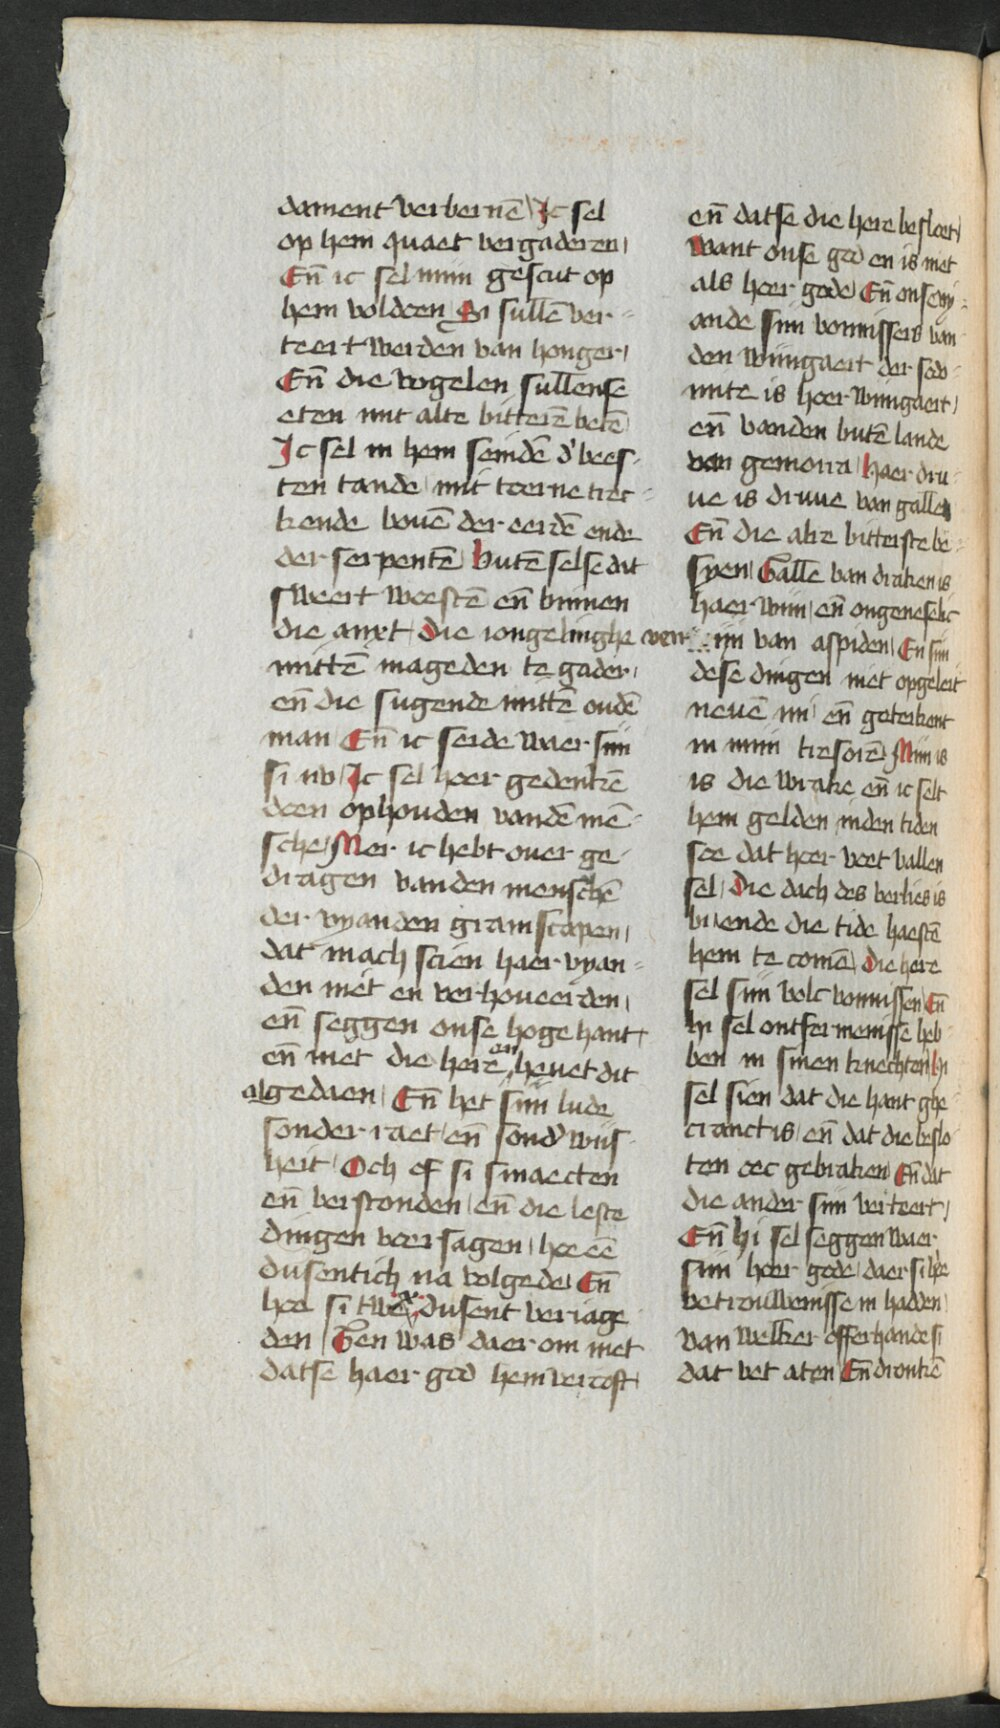 dament verbernē Ic sel
op hem quaet vergaderen
En̄ ic sel miin gescut op
hem voldoen Si sullē ver-
teert werden van honger
En̄ die vogelen sullense
eten mit alte bitterē betē
Ic sel in hem seindē d' bees-
ten tande mit toerne trec-
kende bouē der eerdē ende
der serpentē Butē selse dit
sweert woestē en̄ binnen
die anxt Die iongelinghe
mittē mageden te gader
en̄ die sugende mittē oudē
man En̄ ic seide Waer siin
si nv Ic sel hoer gedenkē
doen ophouden vandē mē-
sche Mer ic hebt ouer ge-
dragen van den menschē
der vyanden gramscapen
dat mach scien haer vyan-
den niet en verhoueerden
en̄ seggen onse hoge hant
en̄ niet die here en heuet dit
al gedaen En̄ het siin lude
sonder raet en̄ sond' wiis-
heit Och of si smaecten
en̄ verstonden en̄ die leste
dingen voersagen hoe eē
dusentich na volgede En̄
hoe si twe x dusent veriage
den Ten was daer om niet
datse haer god hem vercoft
en̄ datse die here besloet
Want onse god en is niet
als hoer gode En̄ onse vy-
ande siin vonnissers van
den wiingaert der sodo-
mite is hoer wiingaert
en̄ vanden butē lande
van gemorra Haer dru-
ue is druue van gallen
En̄ die alre bitterste be-
syen Galle van draken is
haer wiin en̄ ongeneselic
ven iin van aspiden En siin
dese dingen niet opgeleit
neuē mi en̄ geteikent
in miin tresorē Miin is
is die wrake en̄ ic selt
hem gelden inden tiden
soe dat hoer voet vallen
sel Die dach des verlies is
bi ende die tide haestē
hem te comē Die here
sel siin volc vonnissen En̄
hi sel ontfermenisse heb-
ben in sinen knechten Hi
sel sien dat die hant ghe-
cranct is en̄ dat die beslo-
ten oec gebraken En̄ dat
die ander siin verteert
En̄ hi sel seggen waer
siin hoer gode daer si hoe
betrouwenisse in hadden
van welker offerhande si
dat vet aten En̄ dronkē